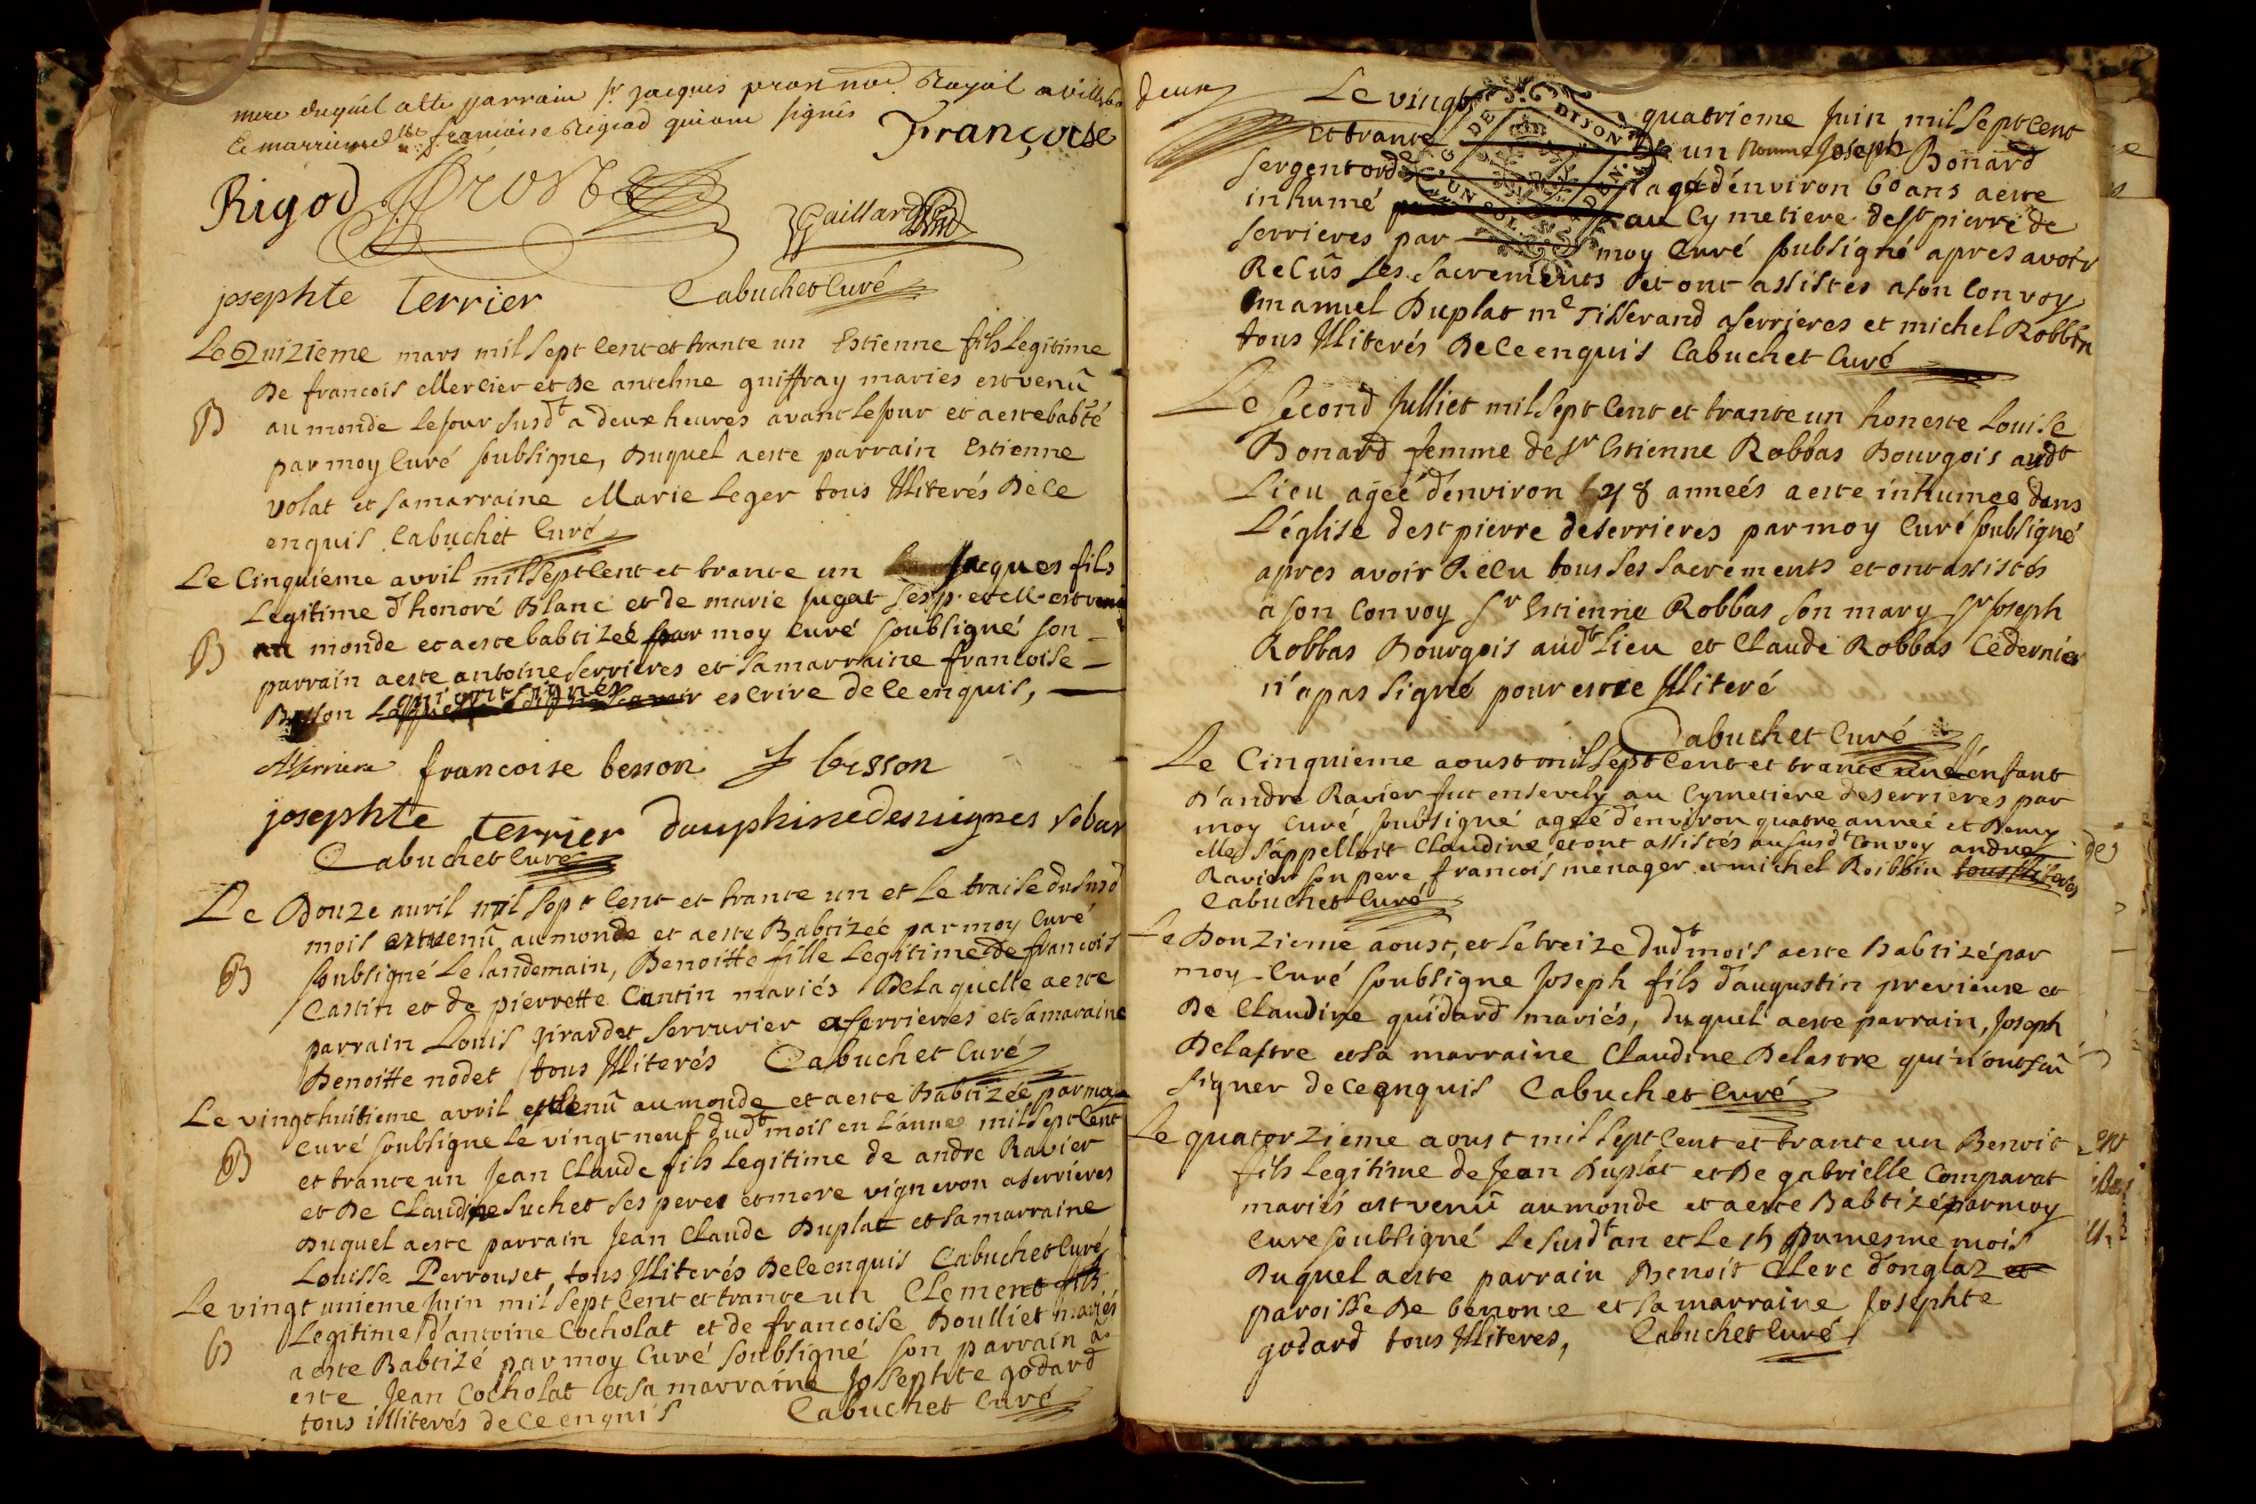 mere duquel a este parrain Sr jacques prost nore Royal a villebo
et marrienne dlle francoise Rigod qui ont signés
Françoise
Rigod Prost
Gaillard
josephte terrier Cabuchet Curé
Le Quizieme mars mil sept Cent et trante un Estienne fils Legitime
De francois Mercier et De antelme guiffray mariés est venû
B au monde Le jour susdt a deux heures avant Le jour et a este babtzé
par moy Curé soubsigne, Duquel a este parrain Estienne
volat et sa marraine Marie Leger tous Illiterés De Ce
enquis Cabuchet Curé
Le Cinquieme avril mil sept Cent et trante un Jacques fils
Legitime d'honoré Blanc et de marie jugat ses p. et M. est venu
B au monde et a este babtizéé par moy Curé soubsigné son
parrain a este antoine serrieres et sa marraine francoise
Besson qui ont signes escrire de Ce enquis,
ASerriere francoise besson f besson
josephte terrier dauphine desvignes
Cabuchet Curé
Le Douze avril mil sept Cent et trante un et Le traise du susd
mois est venû au monde et a este Babtizéé par moy Curé
B soubsigné Le landemain, Benoitte fille Legitime De francois
Castin et de pierrette Cantin mariés De laquelle a este
parrain Louis girardet serrurier a serrieres et sa maraine
Benoitte nodet tous Illiterés Cabuchet Curé
Le vingt huitieme avril est venû au monde et a este Babtizéé par moy
Curé soubsigne Le vingt neuf dudt mois en L'année mil sept Cent
B et trante un Jean Claude fils Legitime de andre Ravier
et De Claudine Suchet ses peres et mere vigneron a serrieres
Duquel a este parrain Jean Claude Duplat et sa marraine
Louisse Perrouset tous Illiterés De Ce enquis Cabuchet Curé
Le vingt unieme Juin mil sept Cent et trante un Clement fils
Legitime d'antoine Cocholat et de francoise Boulliet mariés
B a este Babtizé par moy Curé soubsigné son parrain a
este Jean Cocholat et sa marraine Josephte godard
tous illiterés de Ce enquis Cabuchet Curé
deux
Le vingt quatrieme Juin mil sept Cent
et trante un nommé Joseph Bonard
sergent ordre agé d'environ 60 ans a este
inhumé au Cymetiere de st pierre de
serrieres par moy Curé soubsigné apres avoir
Recûs ses sacrements et ont assistés a son Convoy
Emanuel Duplat me Tisserand a serrieres et michel Robbin
tous Illiterés De Ce enquis Cabuchet Curé
G DE DIJON
UN SOL
Le second Julliet mil sept Cent et trante un honeste Louise
Bonard femme de sr Estienne Robbas Bourgois audt
Lieu ageé d'environ 48 anneés a este inhumeé dans
L'église de st pierre de serrieres par moy Curé soubsigné
apres avoir Recu tous ses sacrements et ont assistés
a son Convoy Sr Estienne Robbas son mary Sr Joseph
Robbas Bourgois audt Lieu et Claude Robbas Ce dernier
n'a pas signé pour estre Illiteré
Cabuchet Curé
Le Cinquieme aoust mil sept Cent et trante un L'enfant
D'andre Ravier fut ensevely au Cymetiere de serrieres par
moy Curé soubsigné ageé d'environ quatre anneé et Demy
elle s'appelloit Claudine et ont assistés au susdt Convoy andre
Ravier son pere francois menager et michel Roibbin tous Illiterés
Cabuchet Curé
Le Douzieme aoust, et Le treize dudt mois a este Babtizé par
moy Curé soubsigne Joseph fils d'augustin previeuse et
De Claudine guidard mariés, duquel a este parrain, Joseph
Delastre et sa marraine Claudine Delastre qui n'ont sû
signer de Ce enquis Cabuchet Curé
Le quatorzieme aoust mil sept Cent et trante un Benoit
fils Legitime de Jean Duplat et De gabrielle Comparat
mariés est venû au monde et a este Babtizé par moy
Cure soubsigné Le susdt an et Le 15 Du mesme mois
Duquel a este parrain Benoit Clerc d'onglaz et
paroisse De benonce et sa marraine Josephte
godard tous Illiteres, Cabuchet Curé